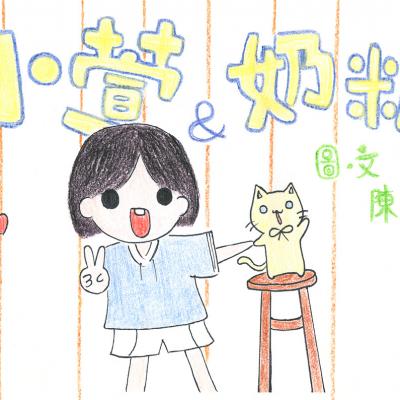 小萱&奶
圖·文
陳